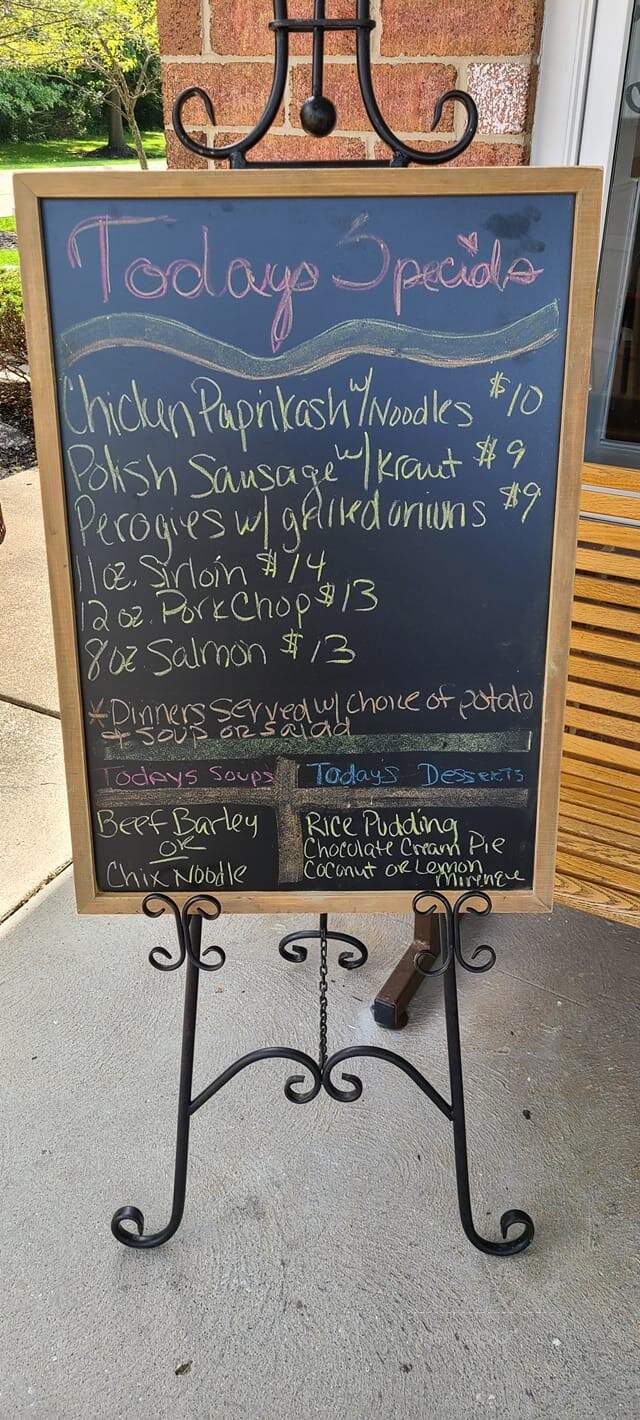 Todays Specials
Chicken Paprikash w/ Noodles $10
Polish Sausage w/ Kraut $9
Perogies w/ grilled onions $9
11 oz. Sirloin $14
12 oz. Pork Chop $13
8 oz Salmon $13
*Dinners served w/ choice of potato
+ soup or salad
Todays Soups
Beef Barley
or
Chix Noodle
Today's Desserts
Rice Pudding
Chocolate Cream Pie
Coconut or Lemon
Mirengue